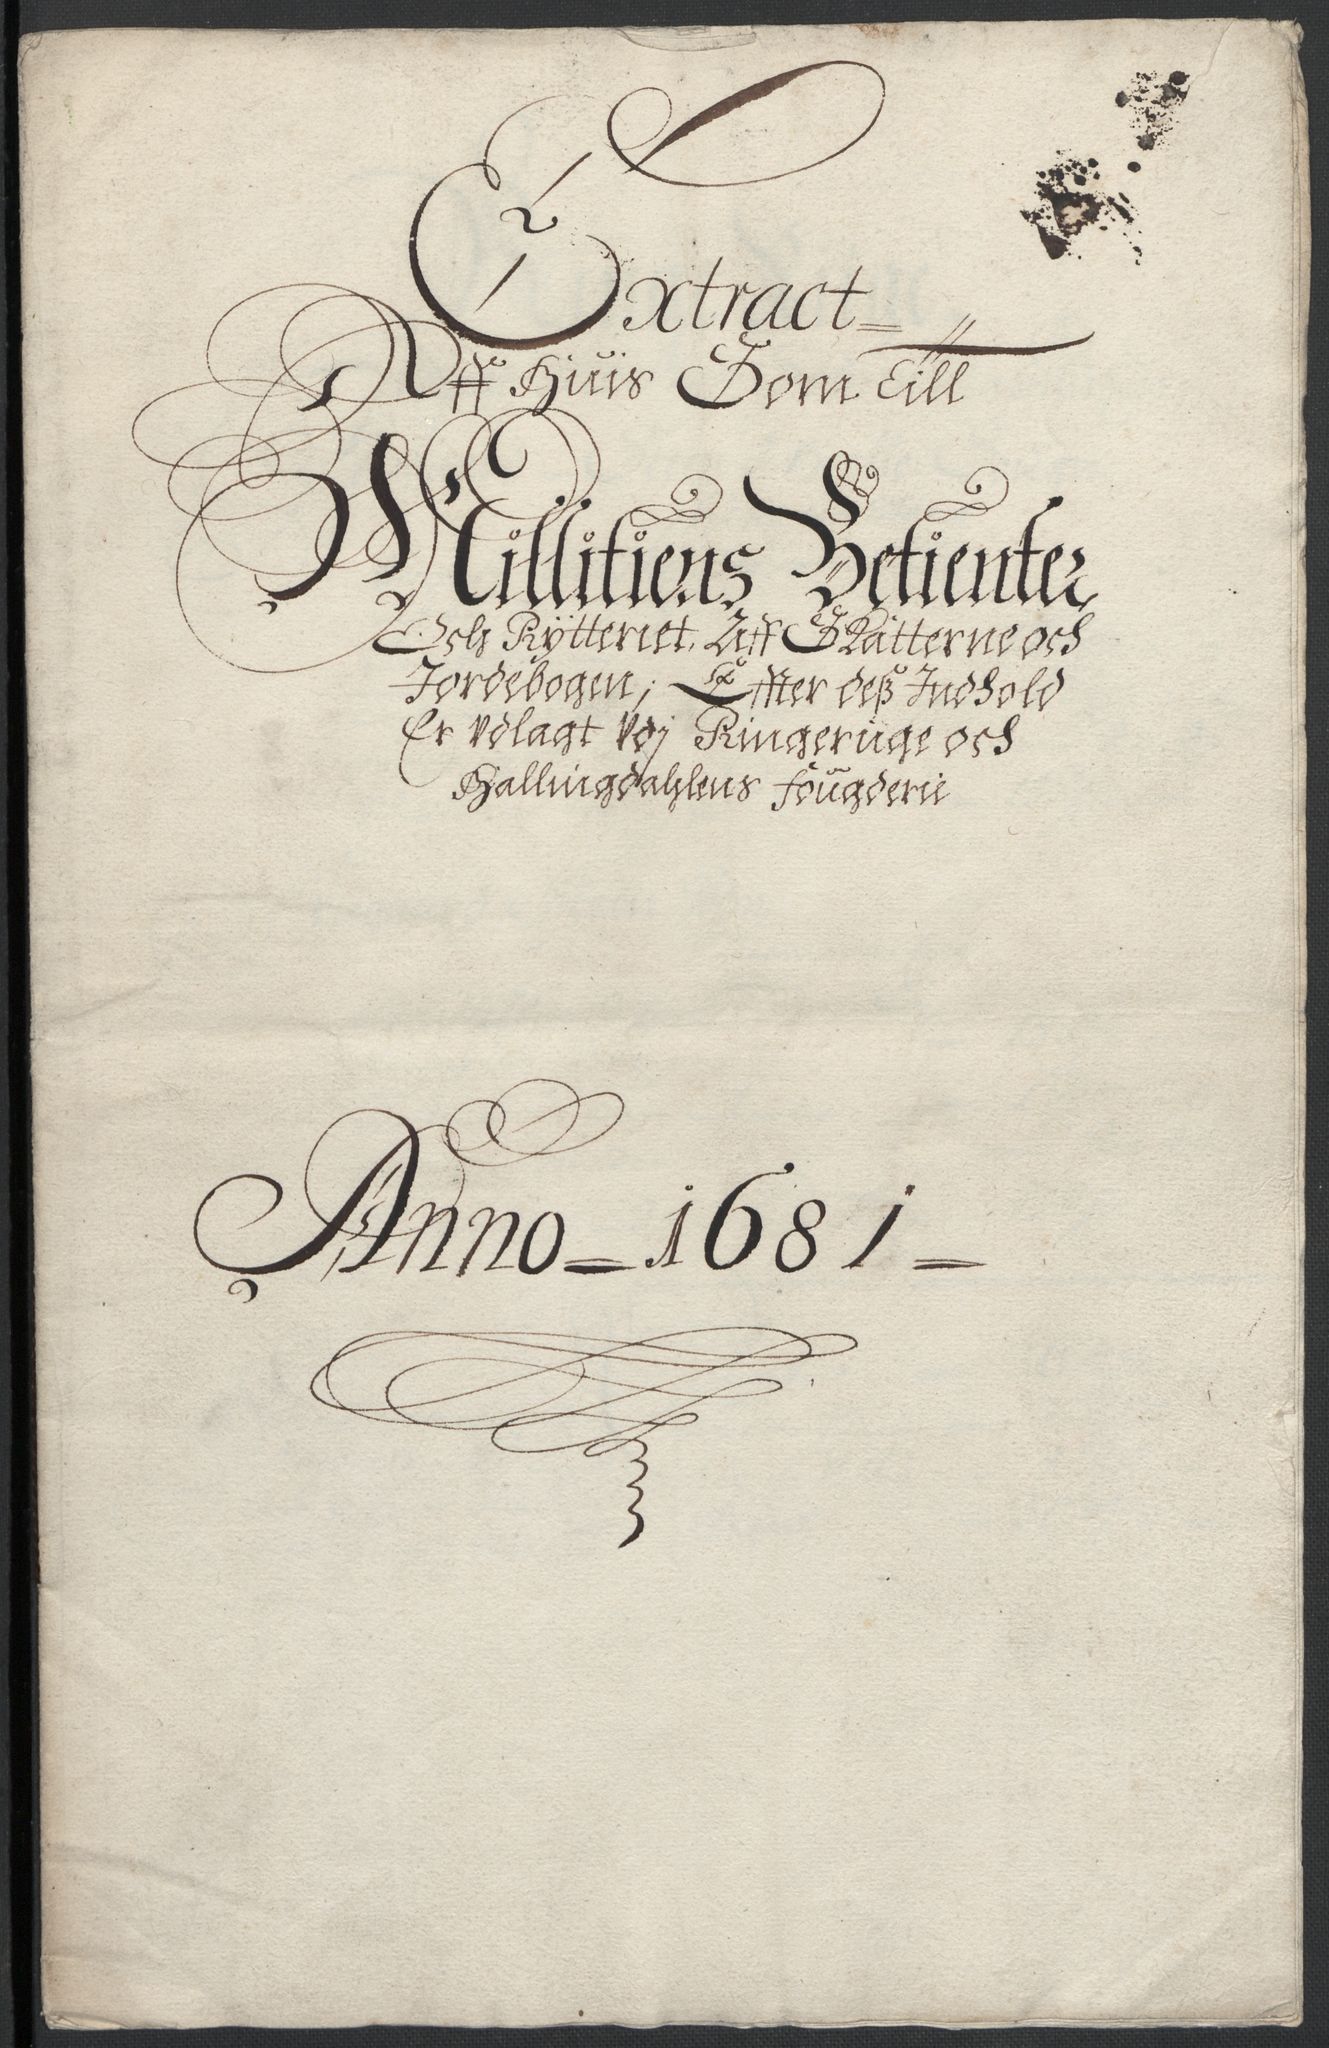 Extract
Aff Huis Som till
Millitiens Betienter
Och Rÿtteriet, Aff Skatterne och
Jordebogen; Effter deß Indhold
Er udlagt udj Ringerige och
Hallingdahlens fougderie
Anno 1681